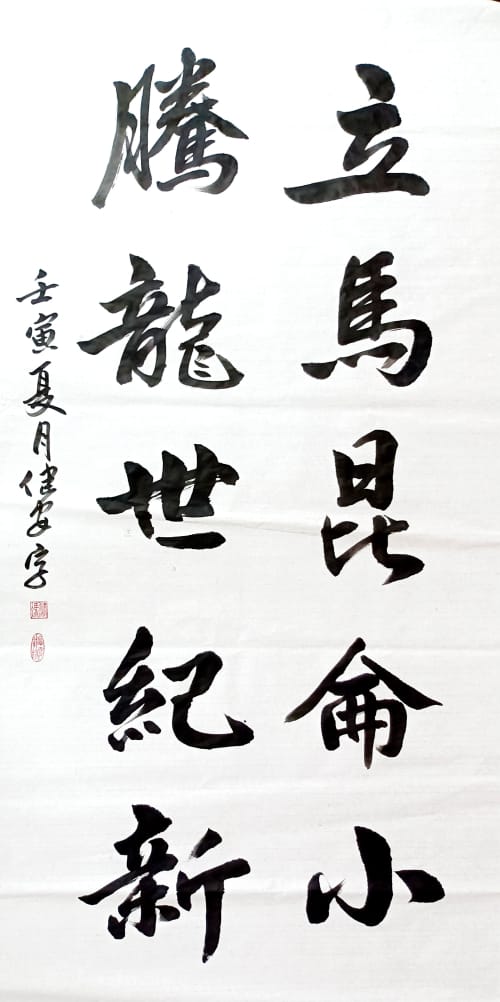 立馬昆侖小
騰龍世紀新
壬寅夏月健安字